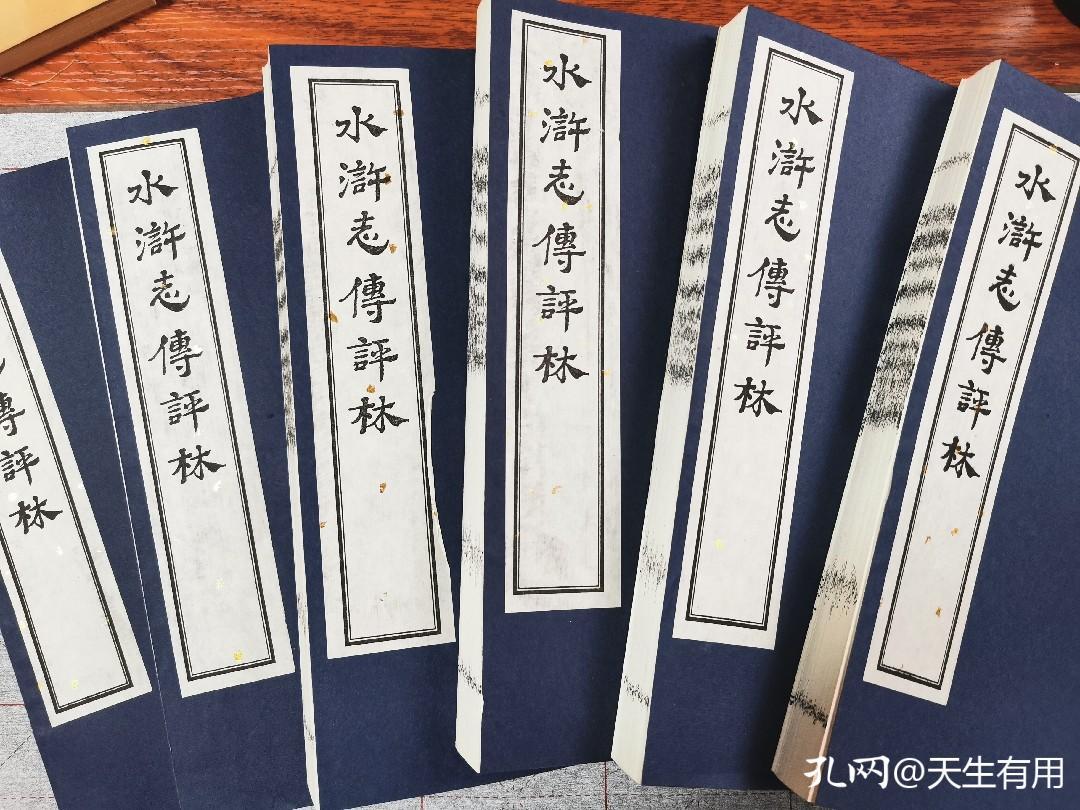 水滸志傳評林
水滸志傳評林
水滸志傳評林
水滸志傳評林
水滸志傳評林
傳評林
孔网@天生有用